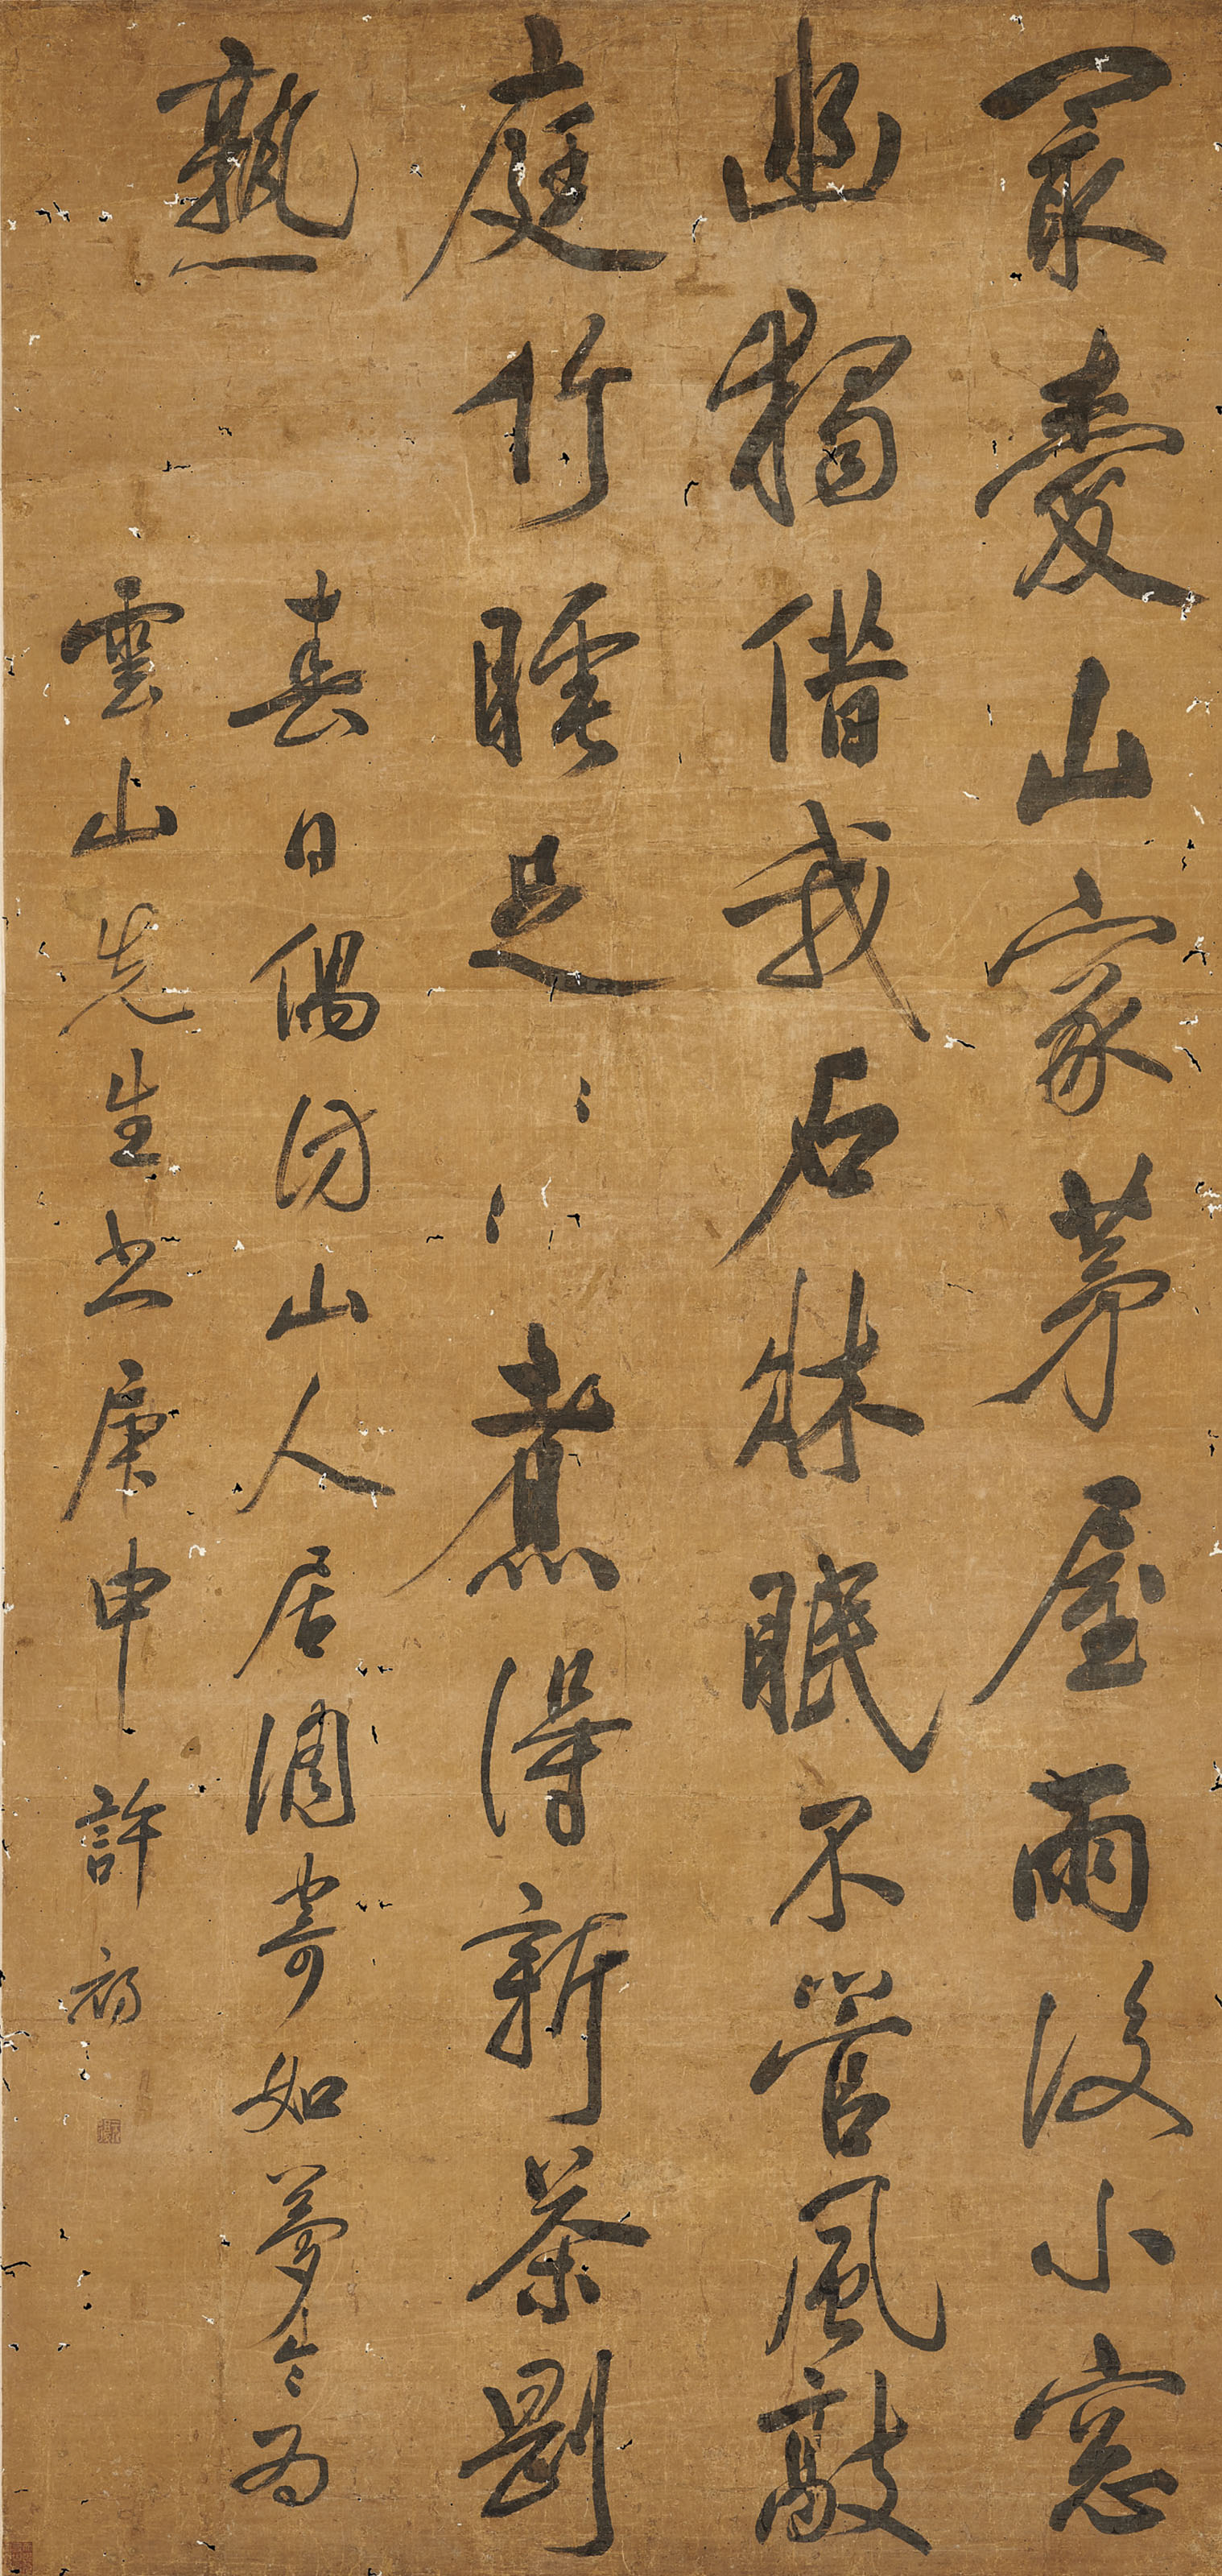 冣愛山家茅屋雨後小窓
幽獨借我石牀眠不管風敲
庭竹睡足〻〻煮得新茶剛
熟
春日偶訪山人居調寄如夢令為
雲山先生書庚申 許初